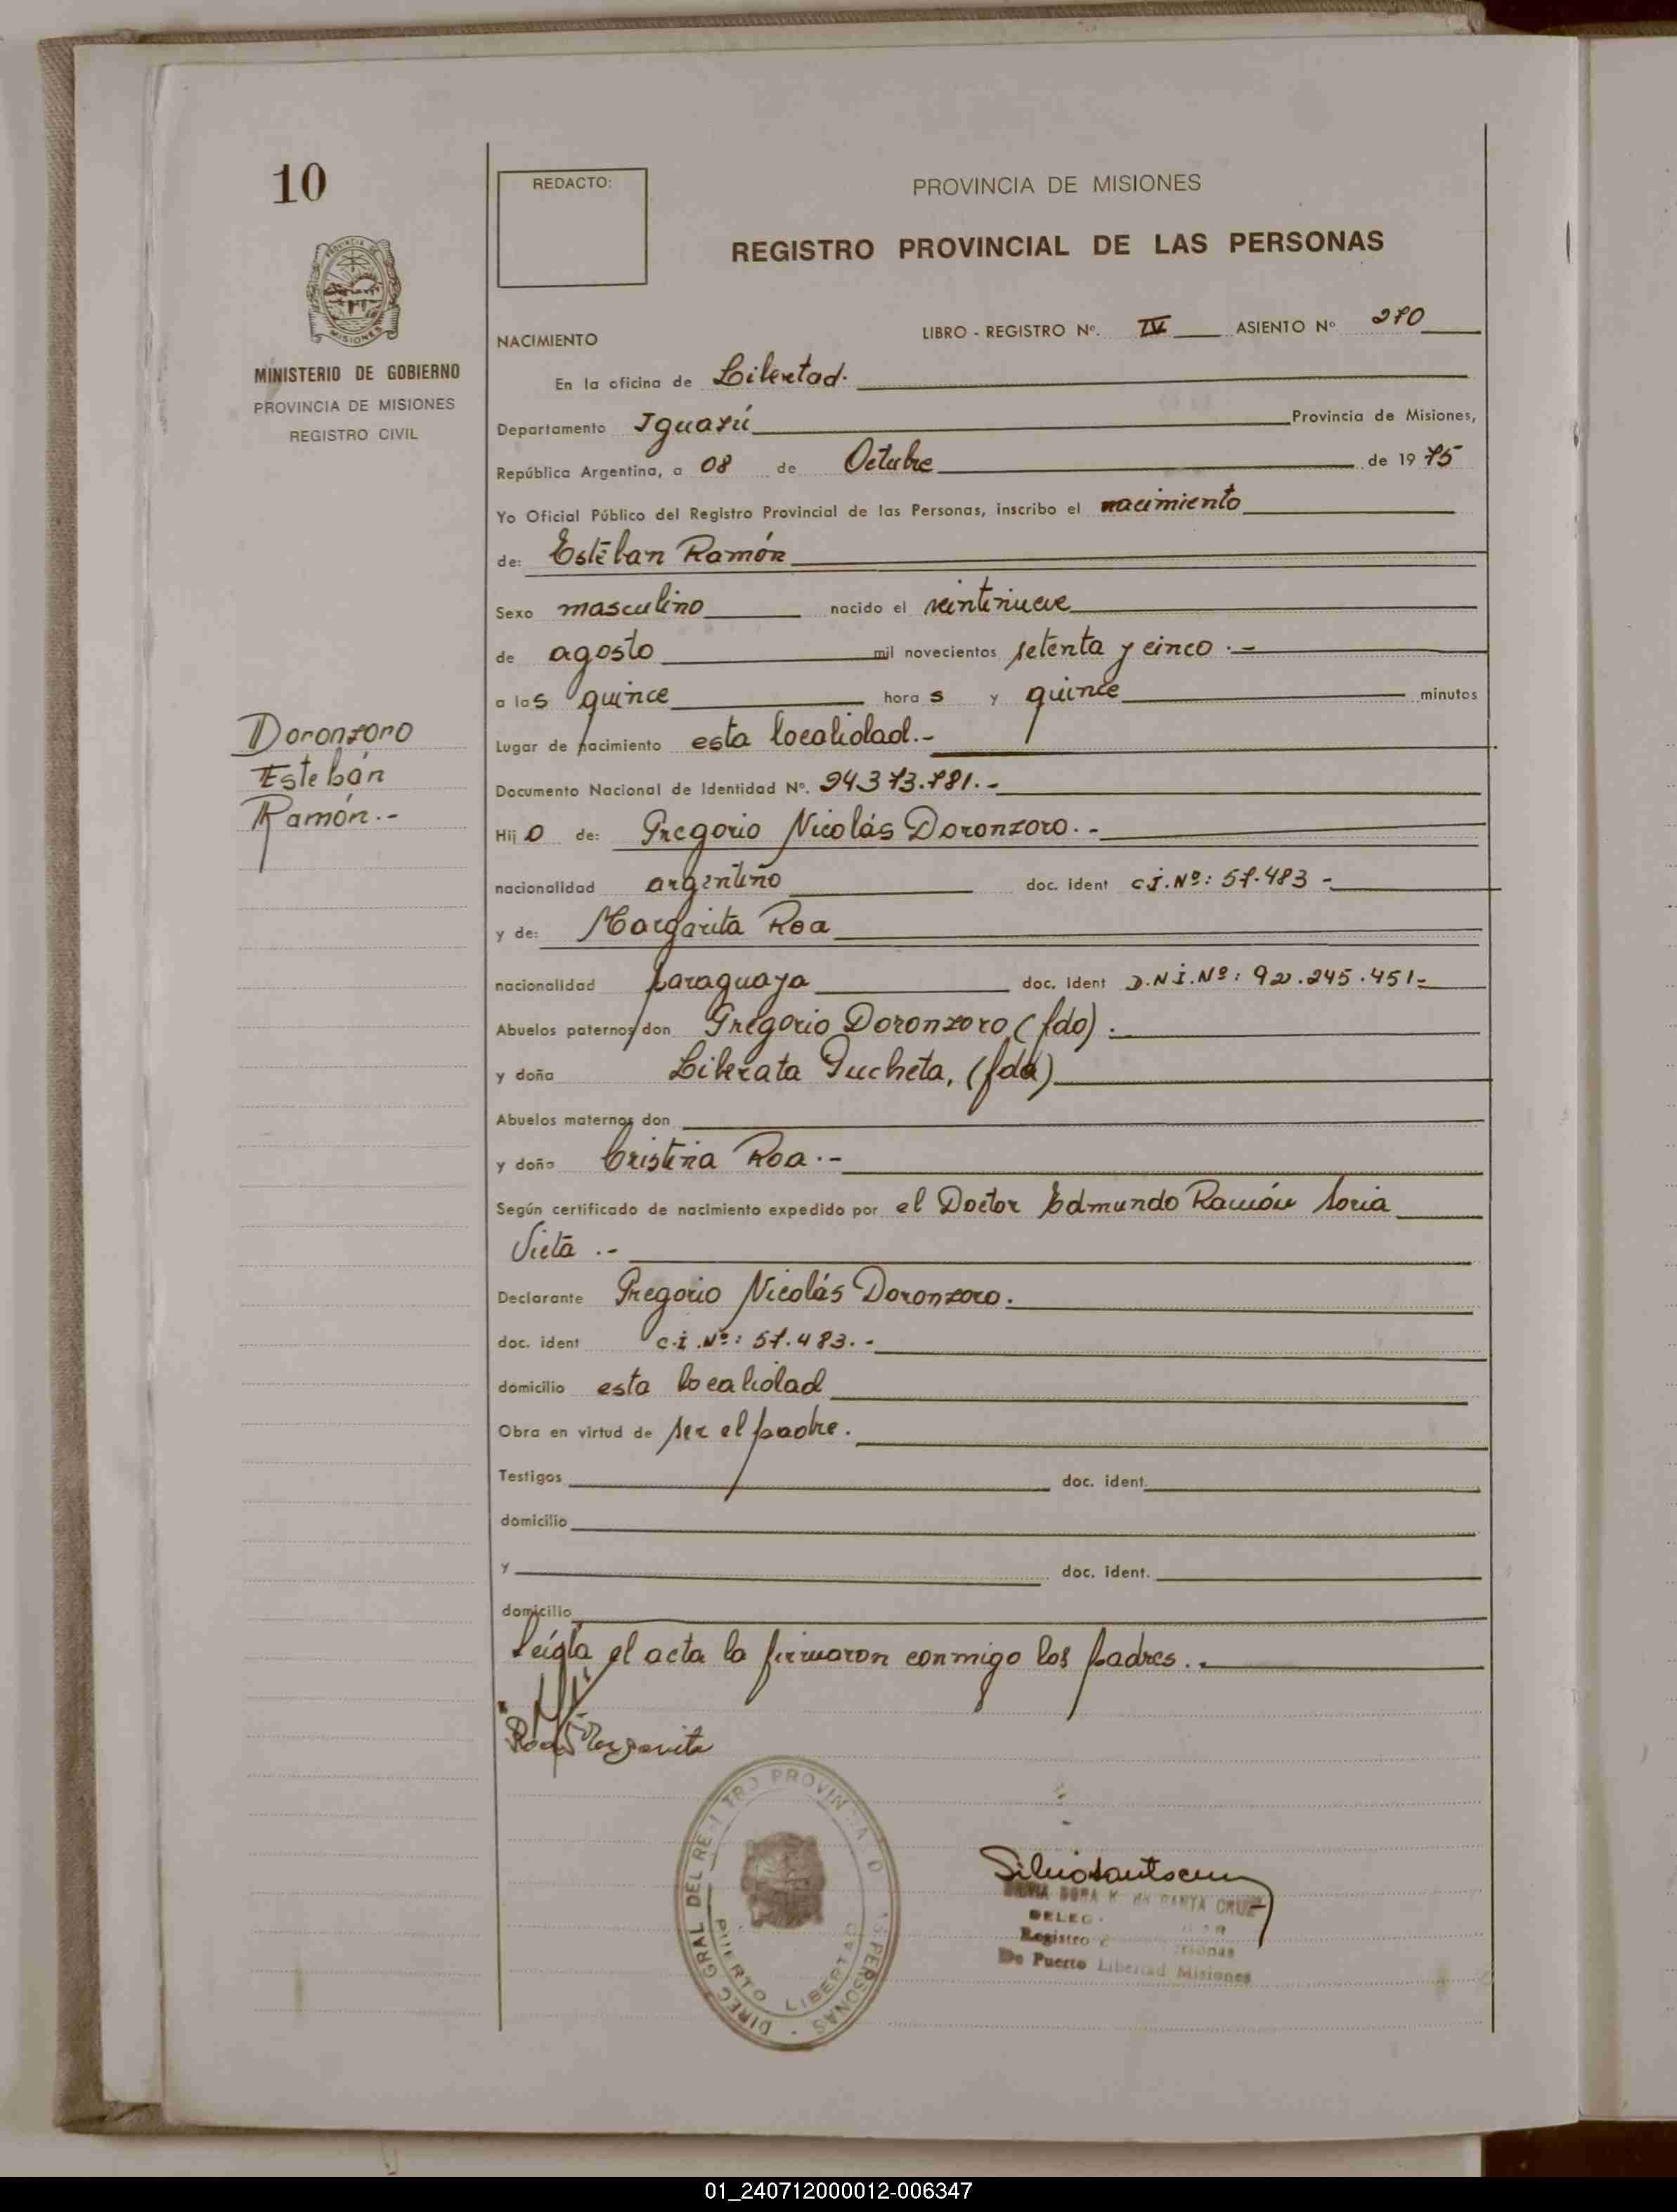 10
REDACTO:
PROVINCIA DE MISIONES
REGISTRO PROVINCIAL DE LAS PERSONAS
MISIONES
MINISTERIO DE GOBIERNO
PROVINCIA DE MISIONES
REGISTRO CIVIL
NACIMIENTO
LIBRO - REGISTRO Nº. IV ASIENTO Nº 270
En la oficina de Libertad.
Departamento Iguazú Provincia de Misiones,
República Argentina, a 08 de Octubre de 1975
Yo Oficial Público del Registro Provincial de las Personas, inscribo el nacimiento
de: Estéban Ramón
Sexo masculino nacido el veintinueve
de agosto mil novecientos setenta y cinco.-
a las quince horas y quince minutos
Lugar de nacimiento esta localidad.-
Doronzoro
Estebán
Ramón.-
Documento Nacional de Identidad Nº. 24.373.781.-
Hijo de: Gregorio Nicolás Doronzoro.-
nacionalidad argentino doc. ident C.I.Nº: 57.483-
y de: Margarita Roa
nacionalidad paraguaya doc. ident D.N.I.Nº: 92.245.451-
Abuelos paternos don Gregorio Doronzoro (fdo).
y doña Liberata Gucheta, (fda)
Abuelos maternos don
y doña Cristina Roa.-
Según certificado de nacimiento expedido por el Doctor Edmundo Ramón Soria
Vieta.-
Declarante Gregorio Nicolás Doronzoro.
doc. ident C.I.Nº: 57.483.-
domicilio esta localidad
Obra en virtud de ser el padre.
Testigos doc. ident.
domicilio
y doc. ident.
domicilio
Leída el acta la firmaron conmigo los padres..
Roa Margarita
DIREC GRAL DEL REGISTRO PROVINCIAL DE LAS PERSONAS
PUERTO LIBERTAD
SILVIA DORA K. DE SANTA CRUZ
DELEG
Registro Personas
De Puerto Libertad Misiones
01_240712000012-006347